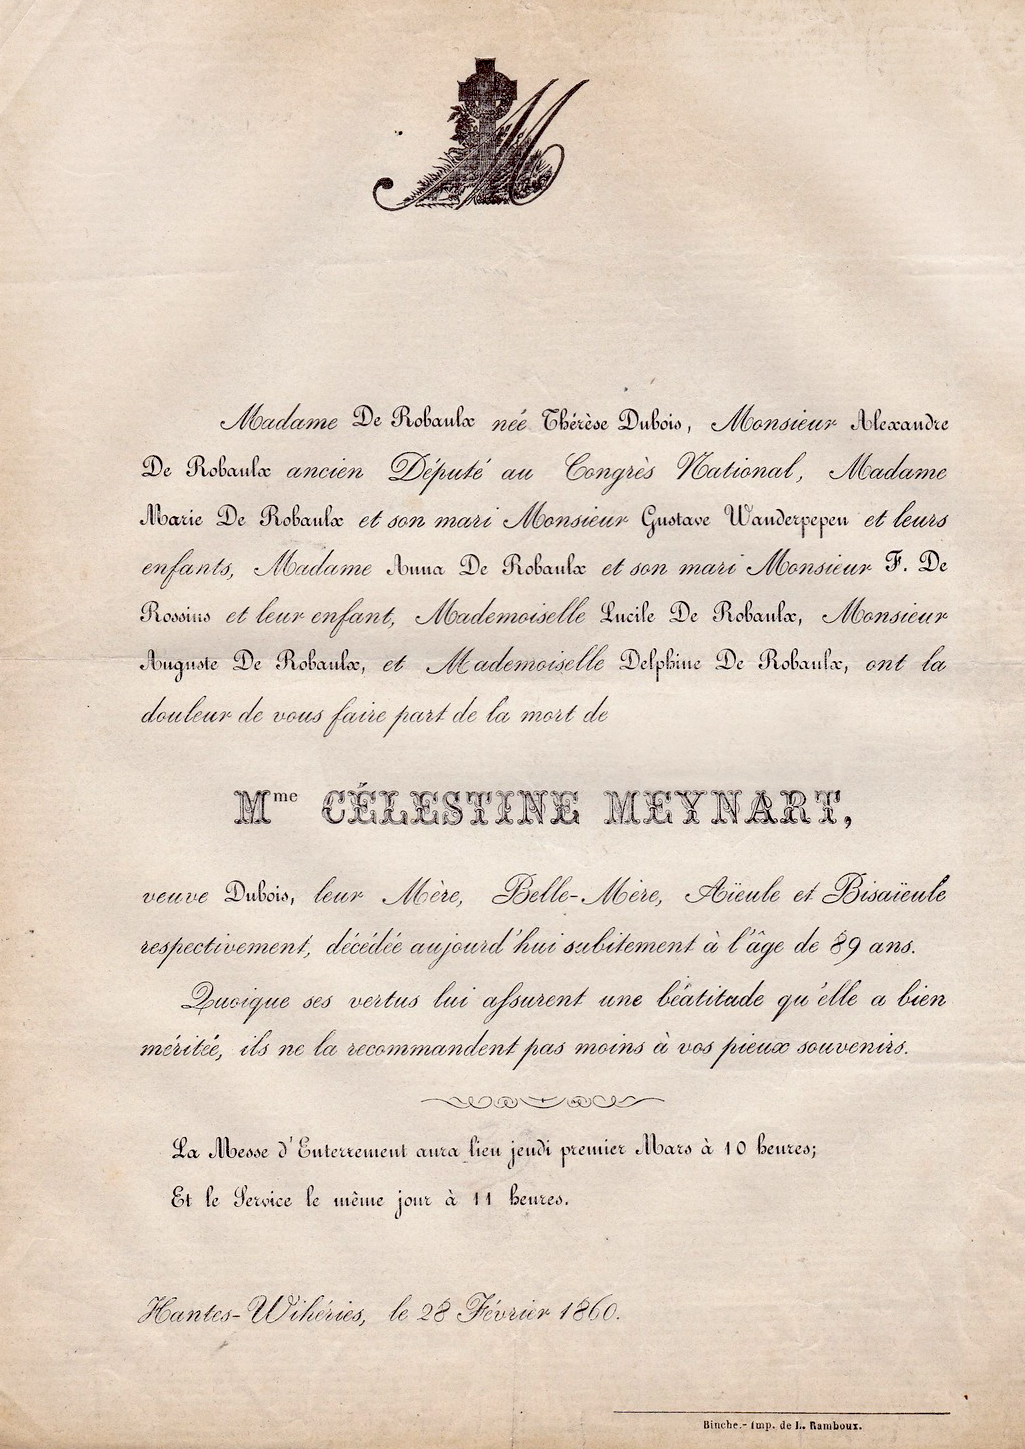 M
Madame De Robaulx née Thérèse Dubois, Monsieur Alexandre
De Robaulx ancien Député au Congrès National, Madame
Marie De Robaulx et son mari Monsieur Gustave Wanderpepen et leurs
enfants, Madame Anna De Robaulx et son mari Monsieur F. De
Rossius et leur enfant, Mademoiselle Lucile De Robaulx, Monsieur
Auguste De Robaulx, et Mademoiselle Delphine De Robaulx, ont la
douleur de vous faire part de la mort de
Mme CÉLESTINE MEYNART,
veuve Dubois, leur Mère, Belle-Mère, Aïeule et Bisaïeule
respectivement, décédée aujourd'hui subitement à l'âge de 89 ans.
Quoique ses vertus lui assurent une béatitude qu'elle a bien
méritée, ils ne la recommandent pas moins à vos pieux souvenirs.
La Messe d'Enterrement aura lieu jeudi premier Mars à 10 heures;
Et le Service le même jour à 11 heures.
Hantes-Wihéries, le 28 Février 1860.
Binche.- Imp. de L. Ramboux.